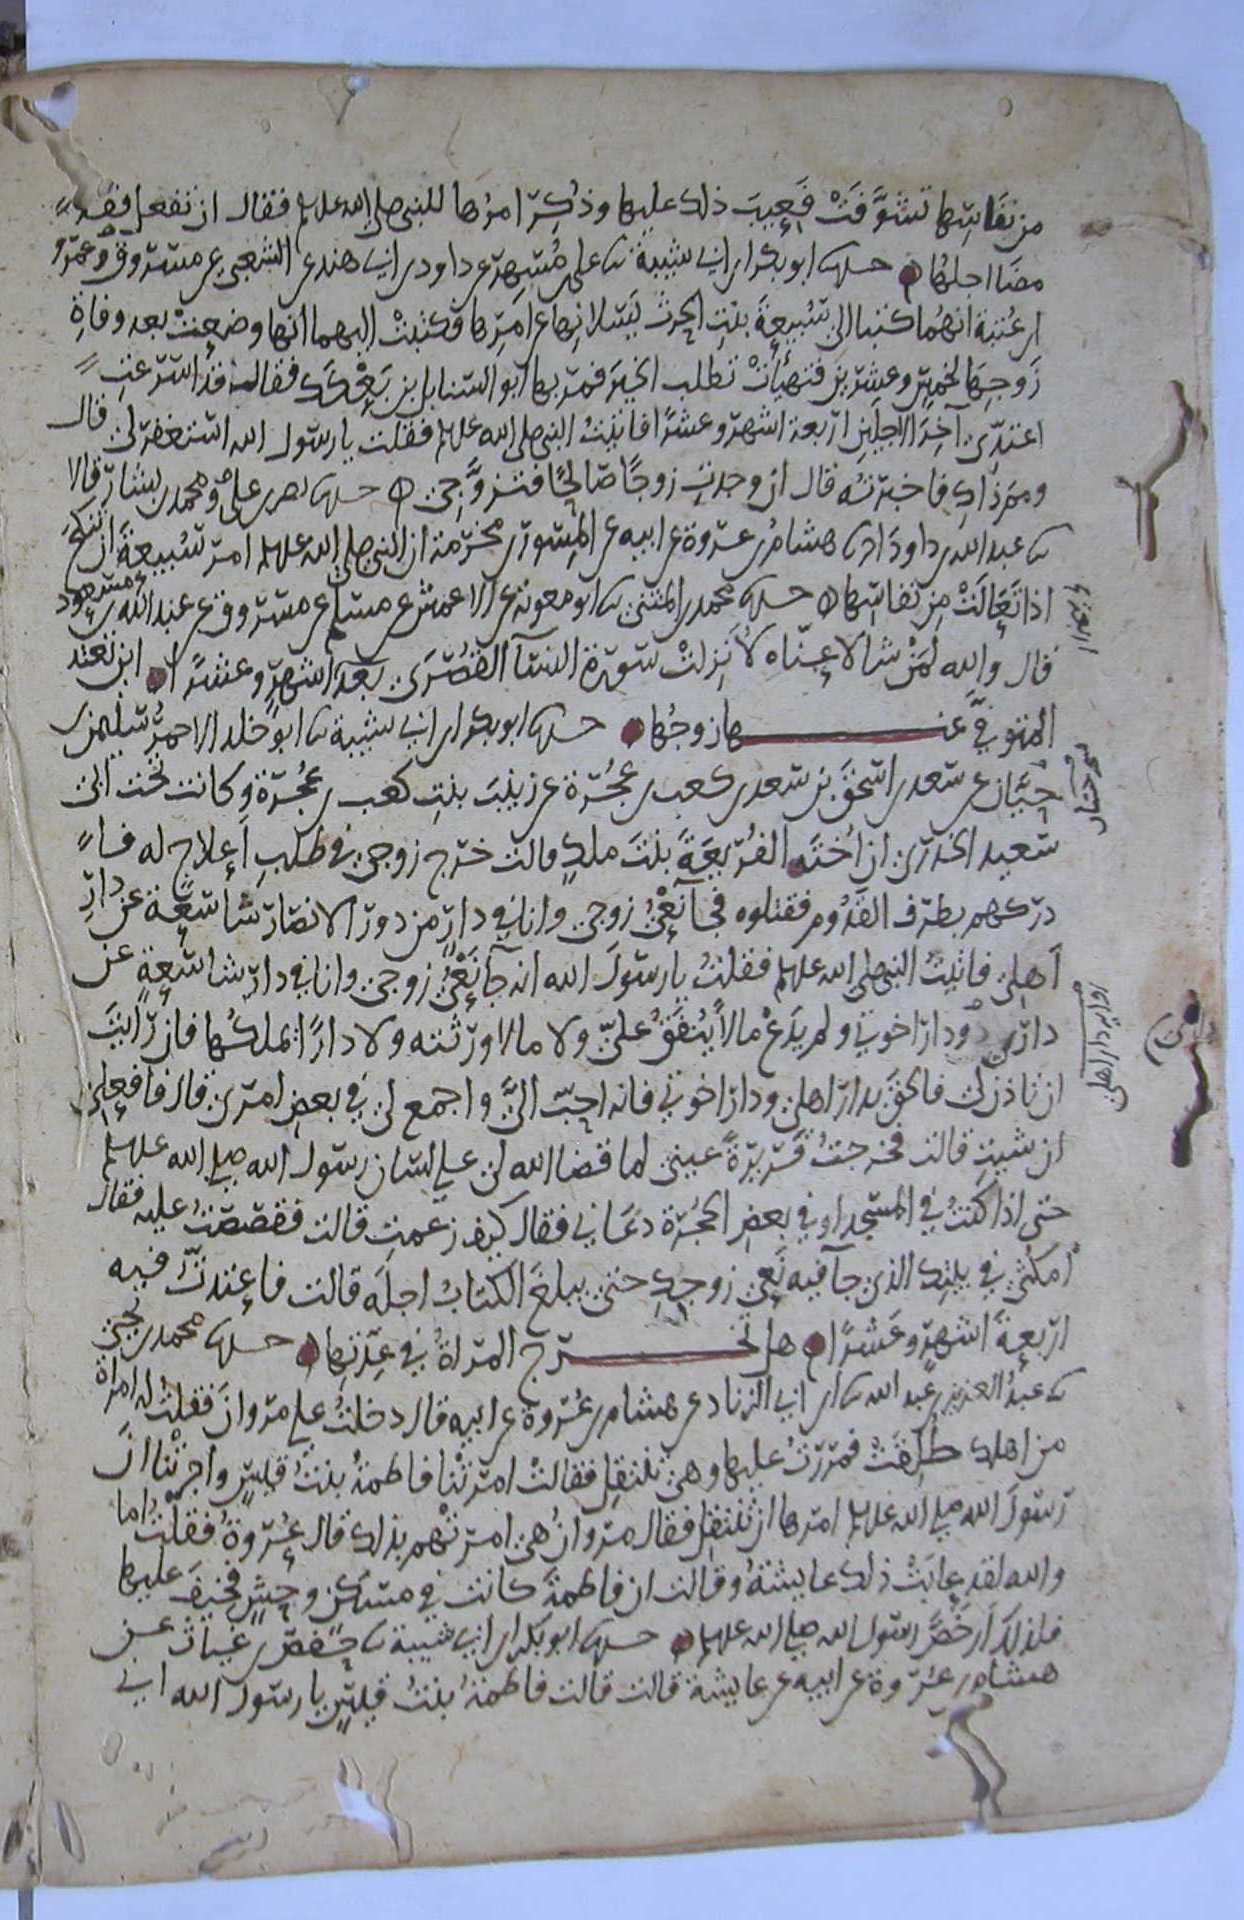 من نفاسها تشوفت فعيب ذلك عليها وذكر امرها للنبي صلى الله علىه وسلم فقال ان تفعل فقد
مضا اجلها حدىا ابو بكر ابن ابي شيبة ىا على بن مسهر عن داود بن ابي هند عن الشعبي عن مسروق وعمرو
ابن عتبة انهما كتبا الى سبيعة بنت الحرث يسلانها عن امرها فكتبت اليهما انها وضعت بعد وفاة
زوجها بخمس وعشرين فتهيأت تطلب الخير فمر بها ابو السنابل بن بعكك فقال قد اسرعت
اعتدي آخر الاجلين اربعة اشهر وعشرا فاتيت النبي صلى الله علىه وسلم فقلت يا رسول الله استغفر لي قال
ومم ذاك فاخبرته قال ان وجدت زوجا صالحا فتزوجي حدىا نصر بن على ومحمد بن بشار قالا
ىا عبد الله بن داود ىا هشام بن عروة عن ابيه عن المسور بن مخرمة ان النبي صلى الله علىه وسلم امر سبيعة ان تنكح
اذا تعالت من نفاسها حدىا محمد بن المثنى ىا ابو معوية عن الاعمش عن مسلم عن مسروق عن عبد الله بن مسعود
قال والله لمن شا لاعناه لانزلت سورة النسآ القصرى بعد اشهر وعشرا اين تعتد
المتوفي عنها زوجها حدىا ابو بكر ابن ابي شيبة ىا ابو خلد الاحمر سليمن بن
حيان عن سعد بن اسحق بن سعد بن كعب بن عجرة عن زينب بنت كعب بن عجرة وكانت تحت ابي
سعيد الخدري ان اخته الفريعة بنت ملك قالت خرج زوجي في طلب اعلاج له فا
دركهم بطرف القدوم فقتلوه فجآ نعي زوجي وانا في دار من دور الانصار شاسعة عن دار
اهلي فاتيت النبي صلى الله علىه وسلم فقلت يا رسول الله انه جآ نعي زوجي وانا في دار شاسعة عن
دار اهلي ودار اخوتي ولم يدع مالا ينفق علي ولا مالا ورثته ولا دارا يملكها فان رايت
ان تاذن لي فالحق بدار اهلي ودار اخوتي فانه احب الي واجمع لي في بعض امري قال فافعلي
ان شيت قالت فخرجت قريرة عيني لما قضا الله لي على لسان رسول الله صلى الله علىه وسلم
حتى اذا كنت في المسجد او في بعض الحجرة دعاني فقال كيف زعمت قالت فقصصت عليه فقال
امكثي في بيتك الذي جآ فيه نعي زوجك حتى يبلغ الكتاب اجله قالت فاعتدت فيه
اربعة اشهر وعشرا هل تخرج المراة في عدتها حدىا محمد بن يحيى
ىا عبد العزيز بن عبد الله ىا ابن ابي الزناد عن هشام بن عروة عن ابيه قال دخلت على مروان فقلت له امراة
من اهلك طلقت فمررت عليها وهي تنتقل فقالت امرتنا فاطمة بنت قيس واخبرتنا ان
رسول الله صلى الله علىه وسلم امرها ان تنتقل فقال مروان هي امرتهم بذلك قال عروة فقلت اما
والله لقد عابت ذلك عايشة وقالت ان فاطمة كانت في مسكن وحش فخيف عليها
فلذلك ارخص رسول الله صلى الله علىه وسلم حدىا ابو بكر ابن ابي شيبة ىا حفص بن غياث عن
هشام بن عروة عن ابيه عن عايشة قالت قالت فاطمة بنت قيس يا رسول الله اني